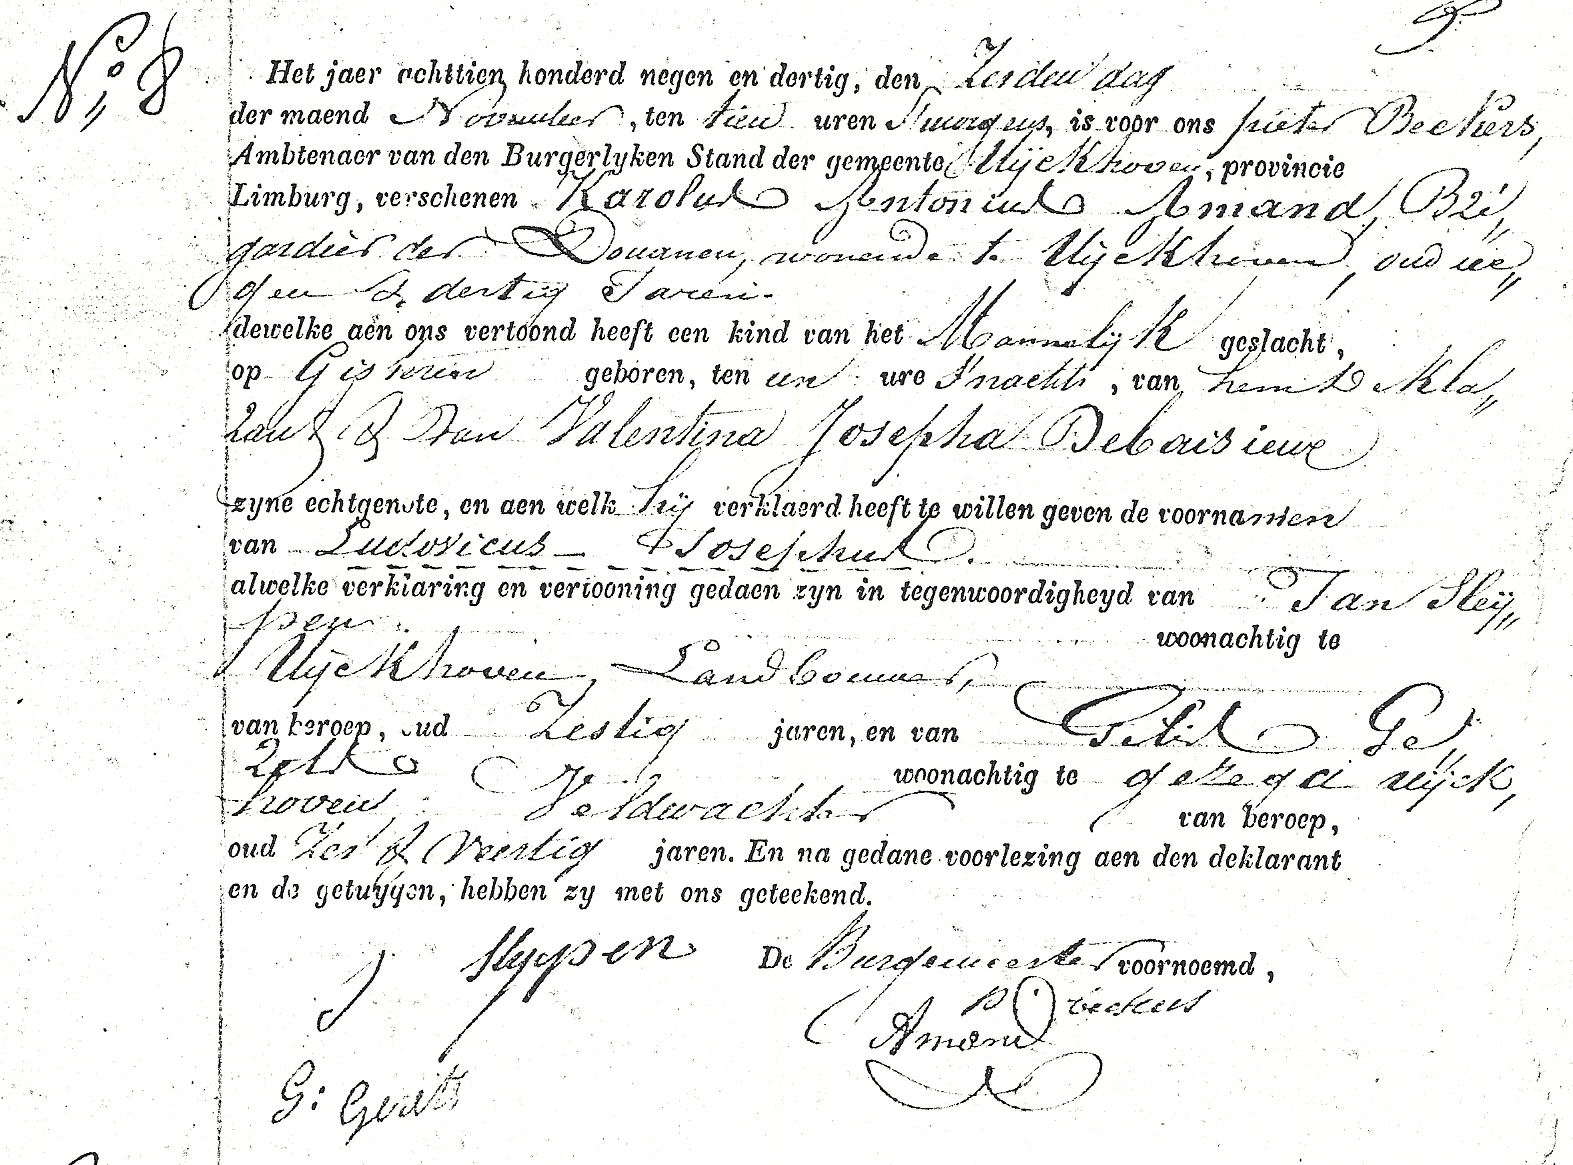 No 8
Het jaer achttien honderd negen en dertig, den Zesden dag
der maend November, ten tien uren S'morgens, is voor ons pieter Beckers,
Ambtenaer van den Burgerlyken Stand der gemeente Uÿckhoven, provincie
Limburg, verschenen Karolus Antonius Amand, Bri,,
gardier der Douanen, wonende te Uÿckhoven, oud ne,,
gen & dertig Jaren.
dewelke aen ons vertoond heeft een kind van het Mannelÿk geslacht,
op Gisteren geboren, ten een ure S'nachts, van hem dekla,,
rant & van Valentina Josepha Debaisieux
zyne echtgenote, en aen welk hÿ verklaerd heeft te willen geven de voornamen
van Ludovicus - Josephus.
alwelke verklaring en vertooning gedaen zyn in tegenwoordigheyd van Jan Sleÿ,,
pen woonachtig te
Uÿckhoven, Landbouwer,
van beroep, oud Zestig jaren, en van Gelis Ge,,
woonachtig te gezegd uÿck,
hoven, Veldwachter van beroep,
oud Zes & Veertig jaren. En na gedane voorlezing aen den deklarant
en de getuygen, hebben zy met ons geteekend.
J Slypen De Burgemeester voornoemd,
P beckers
Amand
G: Gerits